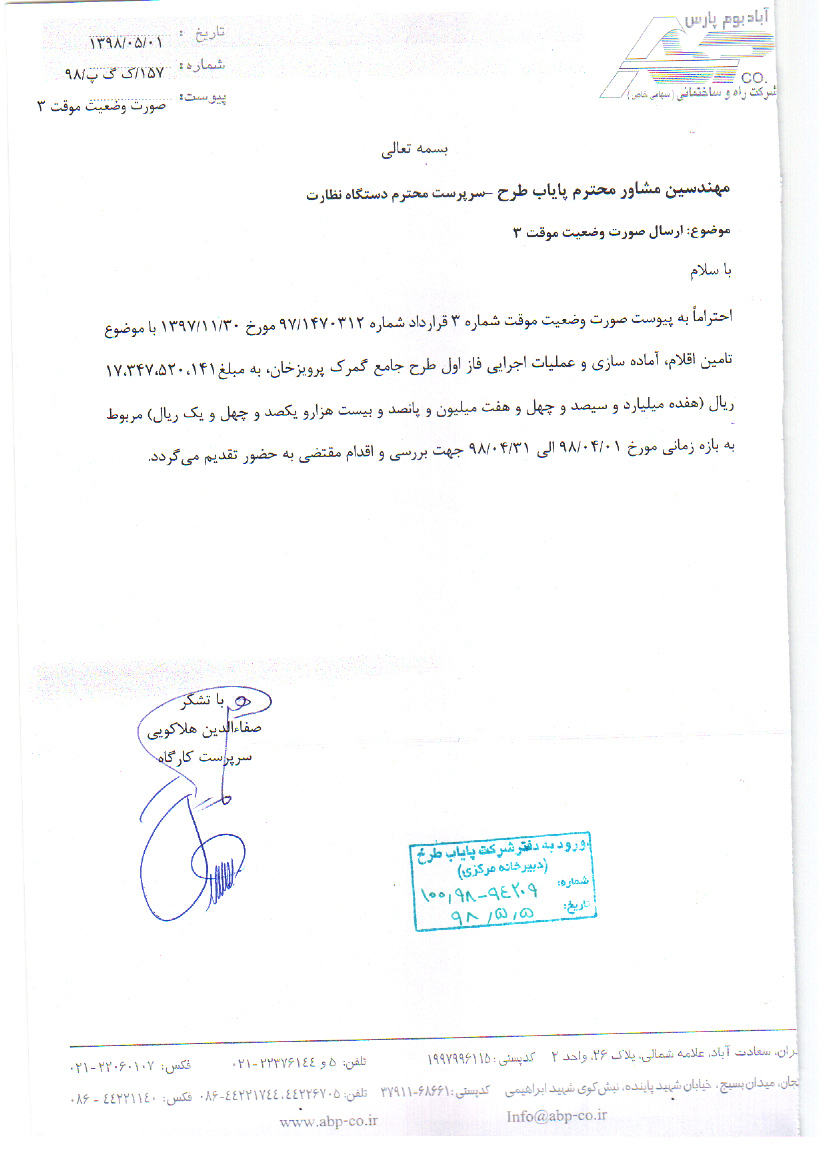 آباد بوم پارس
CO.
شرکت راه و ساختمانی (سهامی خاص)
تاریخ : ۱۳۹۸/۰۵/۰۱
شماره: ۱۵۷/ک گ پ/۹۸
پیوست: صورت وضعیت موقت ۳
بسمه تعالی
مهندسین مشاور محترم پایاب طرح –سرپرست محترم دستگاه نظارت
موضوع: ارسال صورت وضعیت موقت ۳
با سلام
احتراماً به پیوست صورت وضعیت موقت شماره ۳ قرارداد شماره ۹۷/۱۴۷۰۳۱۲ مورخ ۱۳۹۷/۱۱/۳۰ با موضوع
تامین اقلام، آماده سازی و عملیات اجرایی فاز اول طرح جامع گمرک پرویزخان، به مبلغ ۱۷،۳۴۷،۵۲۰،۱۴۱
ریال (هفده میلیارد و سیصد و چهل و هفت میلیون و پانصد و بیست هزارو یکصد و چهل و یک ریال) مربوط
به بازه زمانی مورخ ۹۸/۰۴/۰۱ الی ۹۸/۰۴/۳۱ جهت بررسی و اقدام مقتضی به حضور تقدیم می‌گردد.
با تشکر
صفاءالدین هلاکویی
سرپرست کارگاه
ورود به دفتر شرکت پایاب طرح
(دبیرخانه مرکزی)
شماره: ۱۰۰,۹۸-۹۴۲۰۹
تاریخ: ۹۸,۵,۵
سعادت آباد، علامه شمالی، پلاک ۲۶، واحد ۲ کدپستی: ۱۹۹۷۹۹۶۱۱۵ تلفن: ۵ و ۲۲۳۷۶۱۴۴-۰۲۱ فکس: ۲۲۰۶۰۱۰۷-۰۲۱
میدان بسیج، خیابان شهید پاینده، نبش کوی شهید ابراهیمی کدپستی: ۶۸۶۶۱-۳۷۹۱۱ تلفن: ۴۴۲۲۶۷۰۵، ۴۴۲۲۱۷۴۴-۰۸۶ فکس: ۴۴۲۲۱۱۴۰ - ۰۸۶
www.abp-co.ir Info@abp-co.ir